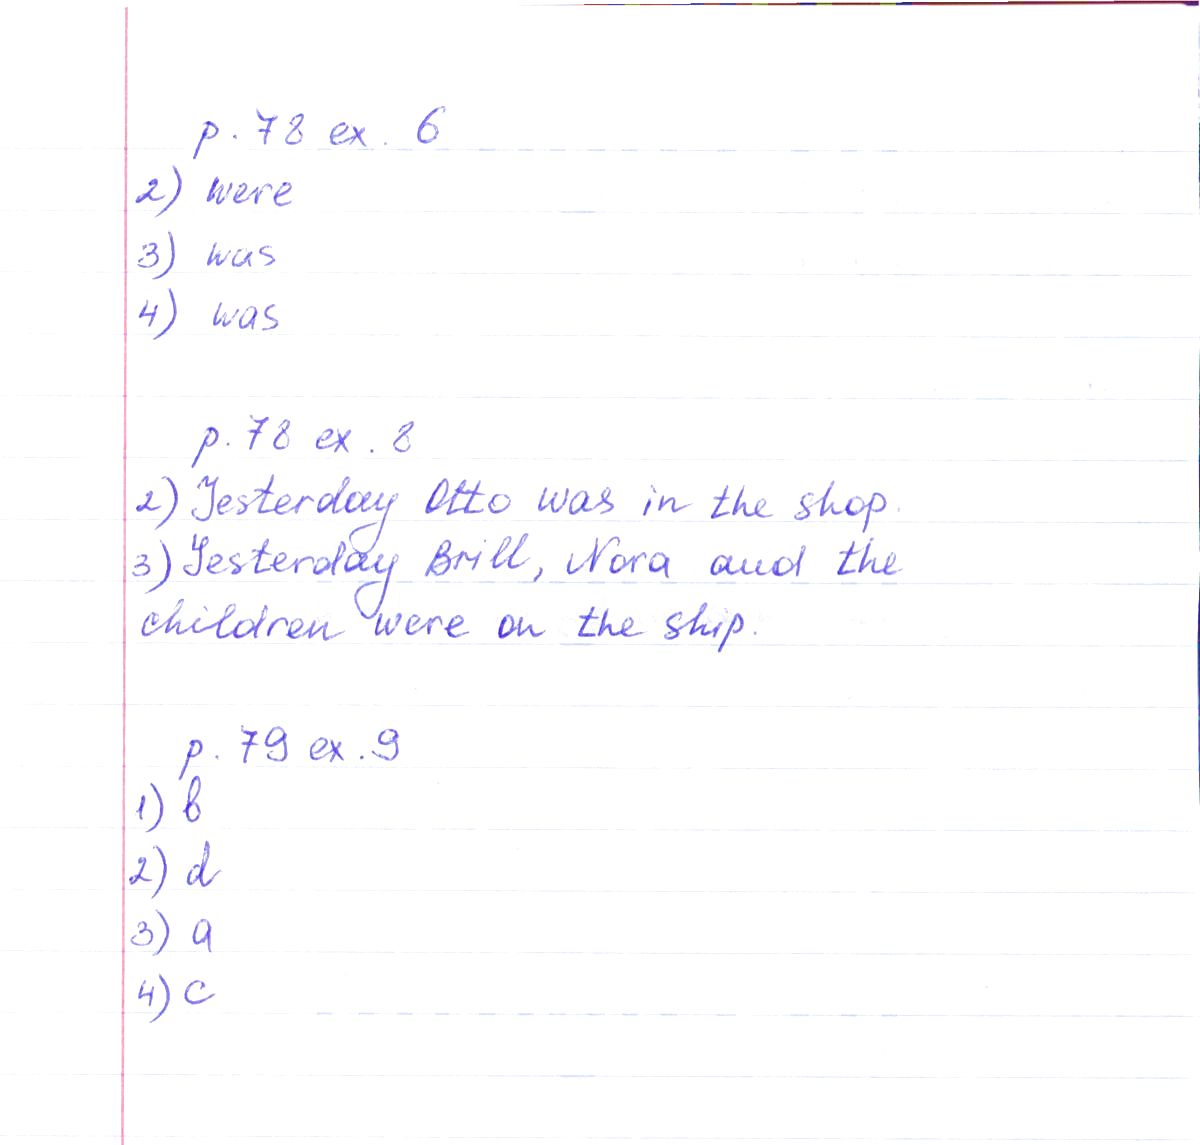 p. 78 ex. 6
2) were
3) was
4) was
p. 78 ex. 8
2) Yesterday Otto was in the shop.
3) Yesterday Brill, Nora and the
children were on the ship.
p. 79 ex. 9
1) b
2) d
3) a
4) c